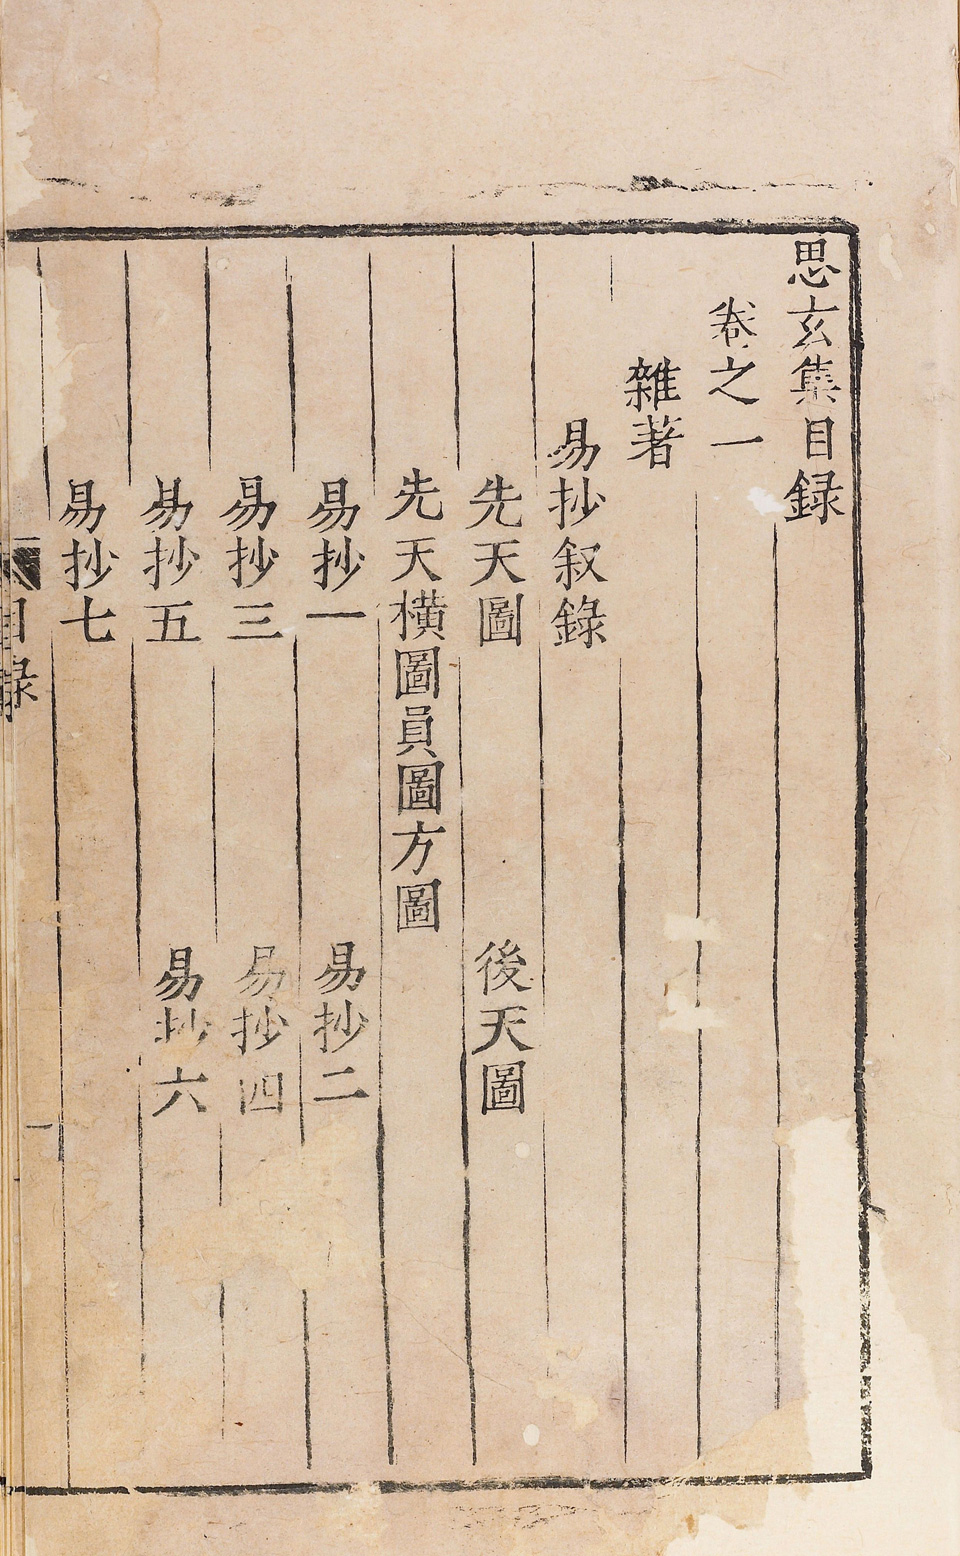 思玄集目録
卷之一
雜著
易抄叙錄
先天圖　後天圖
先天橫圖員圖方圖
易抄一　易抄二
易抄三　易抄四
易抄五　易抄六
易抄七
目錄
一